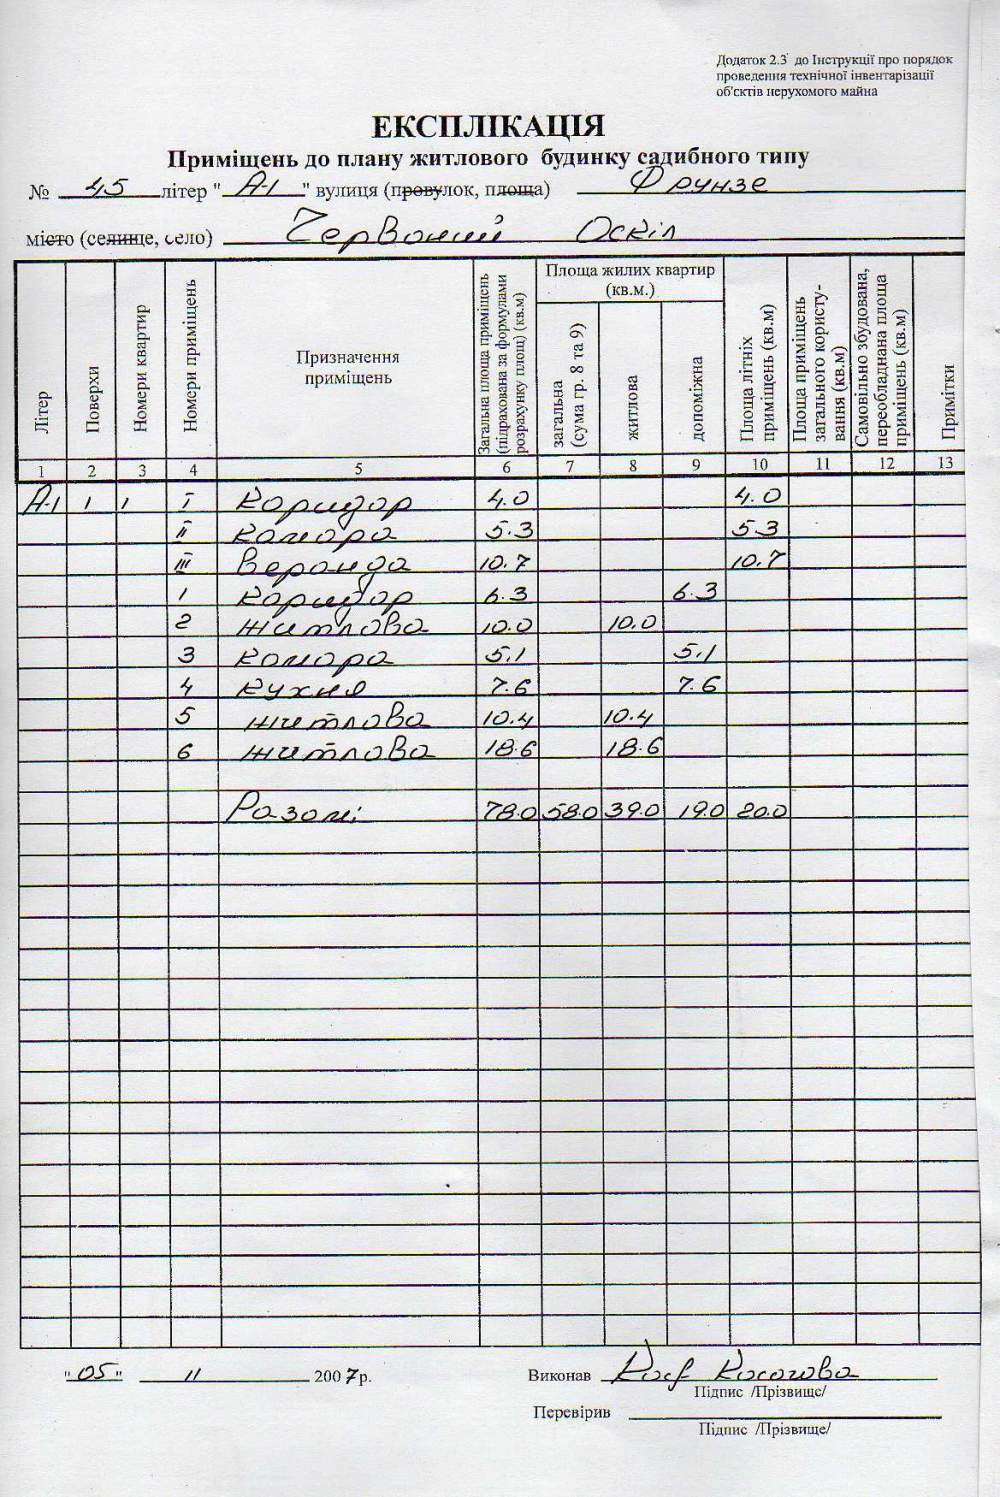 Додаток 2.3 до Інструкції про порядок
проведення технічної інвентарізації
об'єктів нерухомого майна
ЕКСПЛІКАЦІЯ
Приміщень до плану житлового будинку садибного типу
№ 45 літер "А-1" вулиця (провулок, площа) Фрунзе
місто (селище, село) Червоний Оскіл
Літер Поверхи Номери квартир Номери приміщень Призначення приміщень Загальна площа приміщень (підрахована за формулами розрахунку площ) (кв.м) Площа жилих квартир (кв.м.) загальна (сума гр. 8 та 9) житлова допоміжна Площа літніх приміщень (кв.м) Площа приміщень загального користу-вання (кв.м) Самовільно збудована, переобладнана площа приміщень (кв.м) Примітки
1 2 3 4 5 6 7 8 9 10 11 12 13
А-1 1 1 I Коридор 4.0 4.0
II Комора 5.3 5.3
III Веранда 10.7 10.7
1 Коридор 6.3 6.3
2 житлова 10.0 10.0
3 комора 5.1 5.1
4 кухня 7.6 7.6
5 житлова 10.4 10.4
6 житлова 18.6 18.6
Разом: 78.0 58.0 39.0 19.0 20.0
"05" 11 2007р. Виконав Косогова
Підпис /Прізвище/
Перевірив
Підпис /Прізвище/